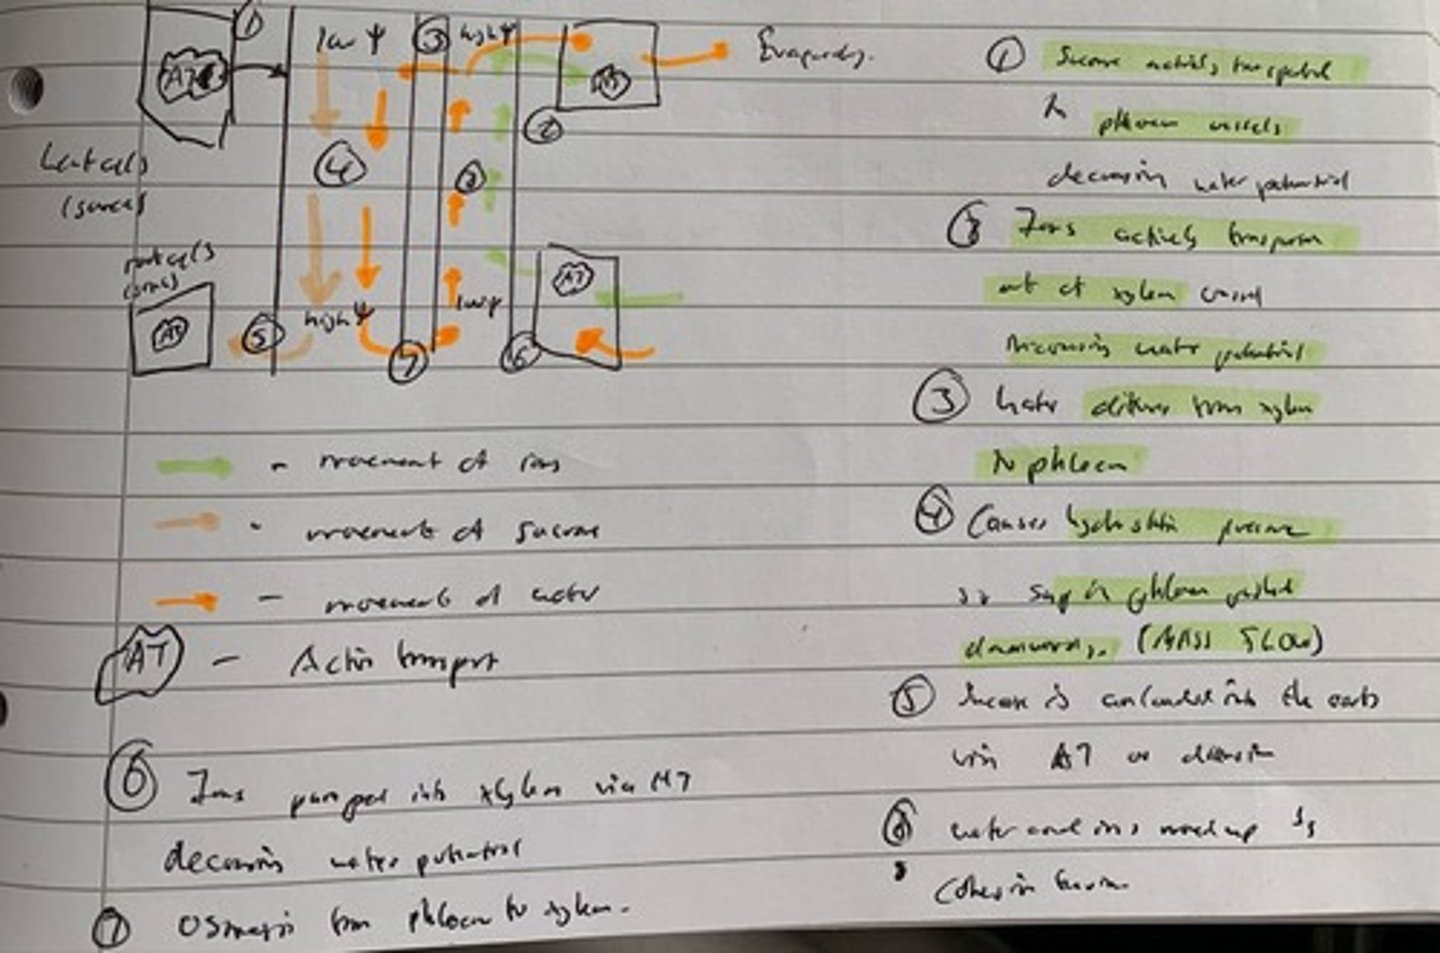 ①
low ψ
③
high ψ
Evaporates.
AT
AT
②
④
⑧
Leaf cells
(source)
root cells
(sink)
AT
AT
high ψ
low ψ
⑤
⑦
⑥
- movement of ions
- movement of sucrose
- movement of water
AT - Active transport
⑥ Ions pumped into xylem via AT
decreasing water potential
⑦ Osmosis from phloem to xylem.
① Sucrose actively transported
to phloem vessels
decreasing water potential
Ions actively transported
out of xylem vessel
increasing water potential
③ Water diffuses from xylem
to phloem
④ Causes hydrostatic pressure
so sap in phloem pushed
downwards. (MASS FLOW)
⑤ Sucrose is unloaded into the roots
via AT or diffusion
⑧ water and ions moved up by
cohesion tension